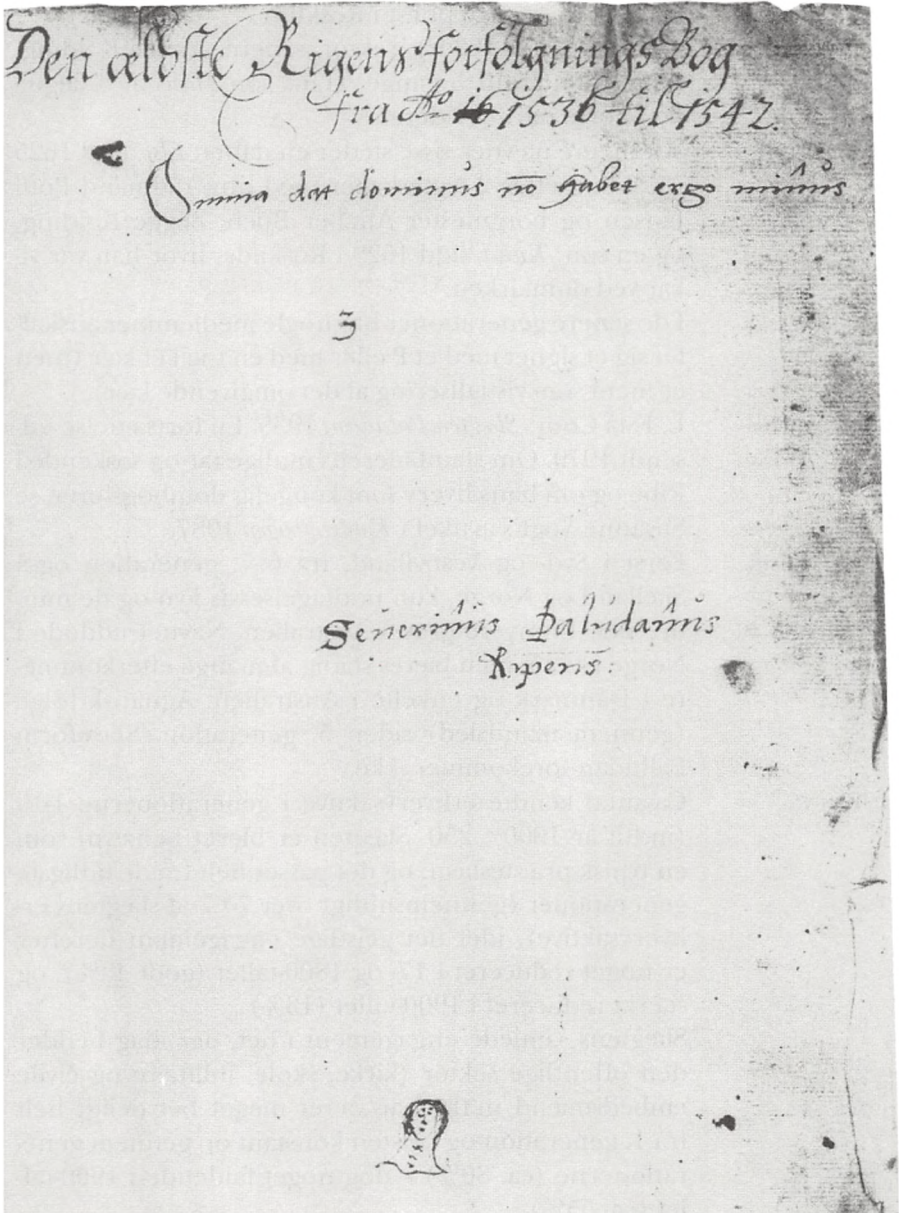 Den ældste Rigens forfolgnings Bog
fra Ao 16 1536 til 1542.
Omnia dat dominus nō habet ergo minus
3
Seuerinus Paludanus
Ripens̄: